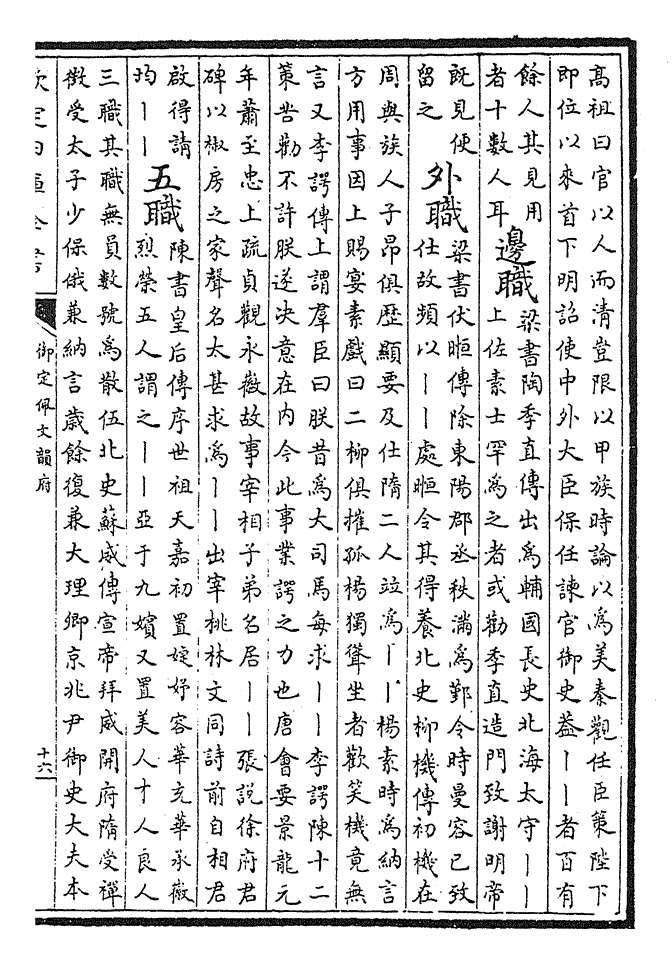 高祖曰官以人而清豈限以甲族時論以爲美秦觀任臣策陛下
即位以來首下明詔使中外大臣保任諫官御史葢丨丨者百有
餘人其見用
者十數人耳
邊職
梁書陶季直傳出爲輔國長史北海太守丨丨
上佐素士罕爲之者或勸季直造門致謝明帝
既見便
留之
外職
梁書伏暅傳除東陽郡丞秩滿爲鄞令時曼容已致
仕故頻以丨丨處暅令其得養北史柳機傳初機在
周與族人子昂俱歷顯要及仕隋二人竝爲丨丨楊素時爲納言
方用事因上賜宴素戲曰二柳俱摧孤楊獨聳坐者歡笑機竟無
言又李諤傳上謂羣臣曰朕昔爲大司馬每求丨丨李諤陳十二
策苦勸不許朕遂決意在内今此事業諤之力也唐會要景龍元
年蕭至忠上疏貞觀永徽故事宰相子弟多居丨丨張說徐府君
碑以椒房之家聲名太甚求爲丨丨出宰桃林文同詩前自相君
啟得請
均丨丨
五職
陳書皇后傳序世祖天嘉初置婕妤容華充華承徽
烈榮五人謂之丨丨亞于九嬪又置美人才人良人
三職其職無員數號爲散伍北史蘇威傳宣帝拜威開府隋受禪
徵受太子少保俄兼納言歲餘復兼大理卿京兆尹御史大夫本
欽定四庫全書
御定佩文韻府
十六